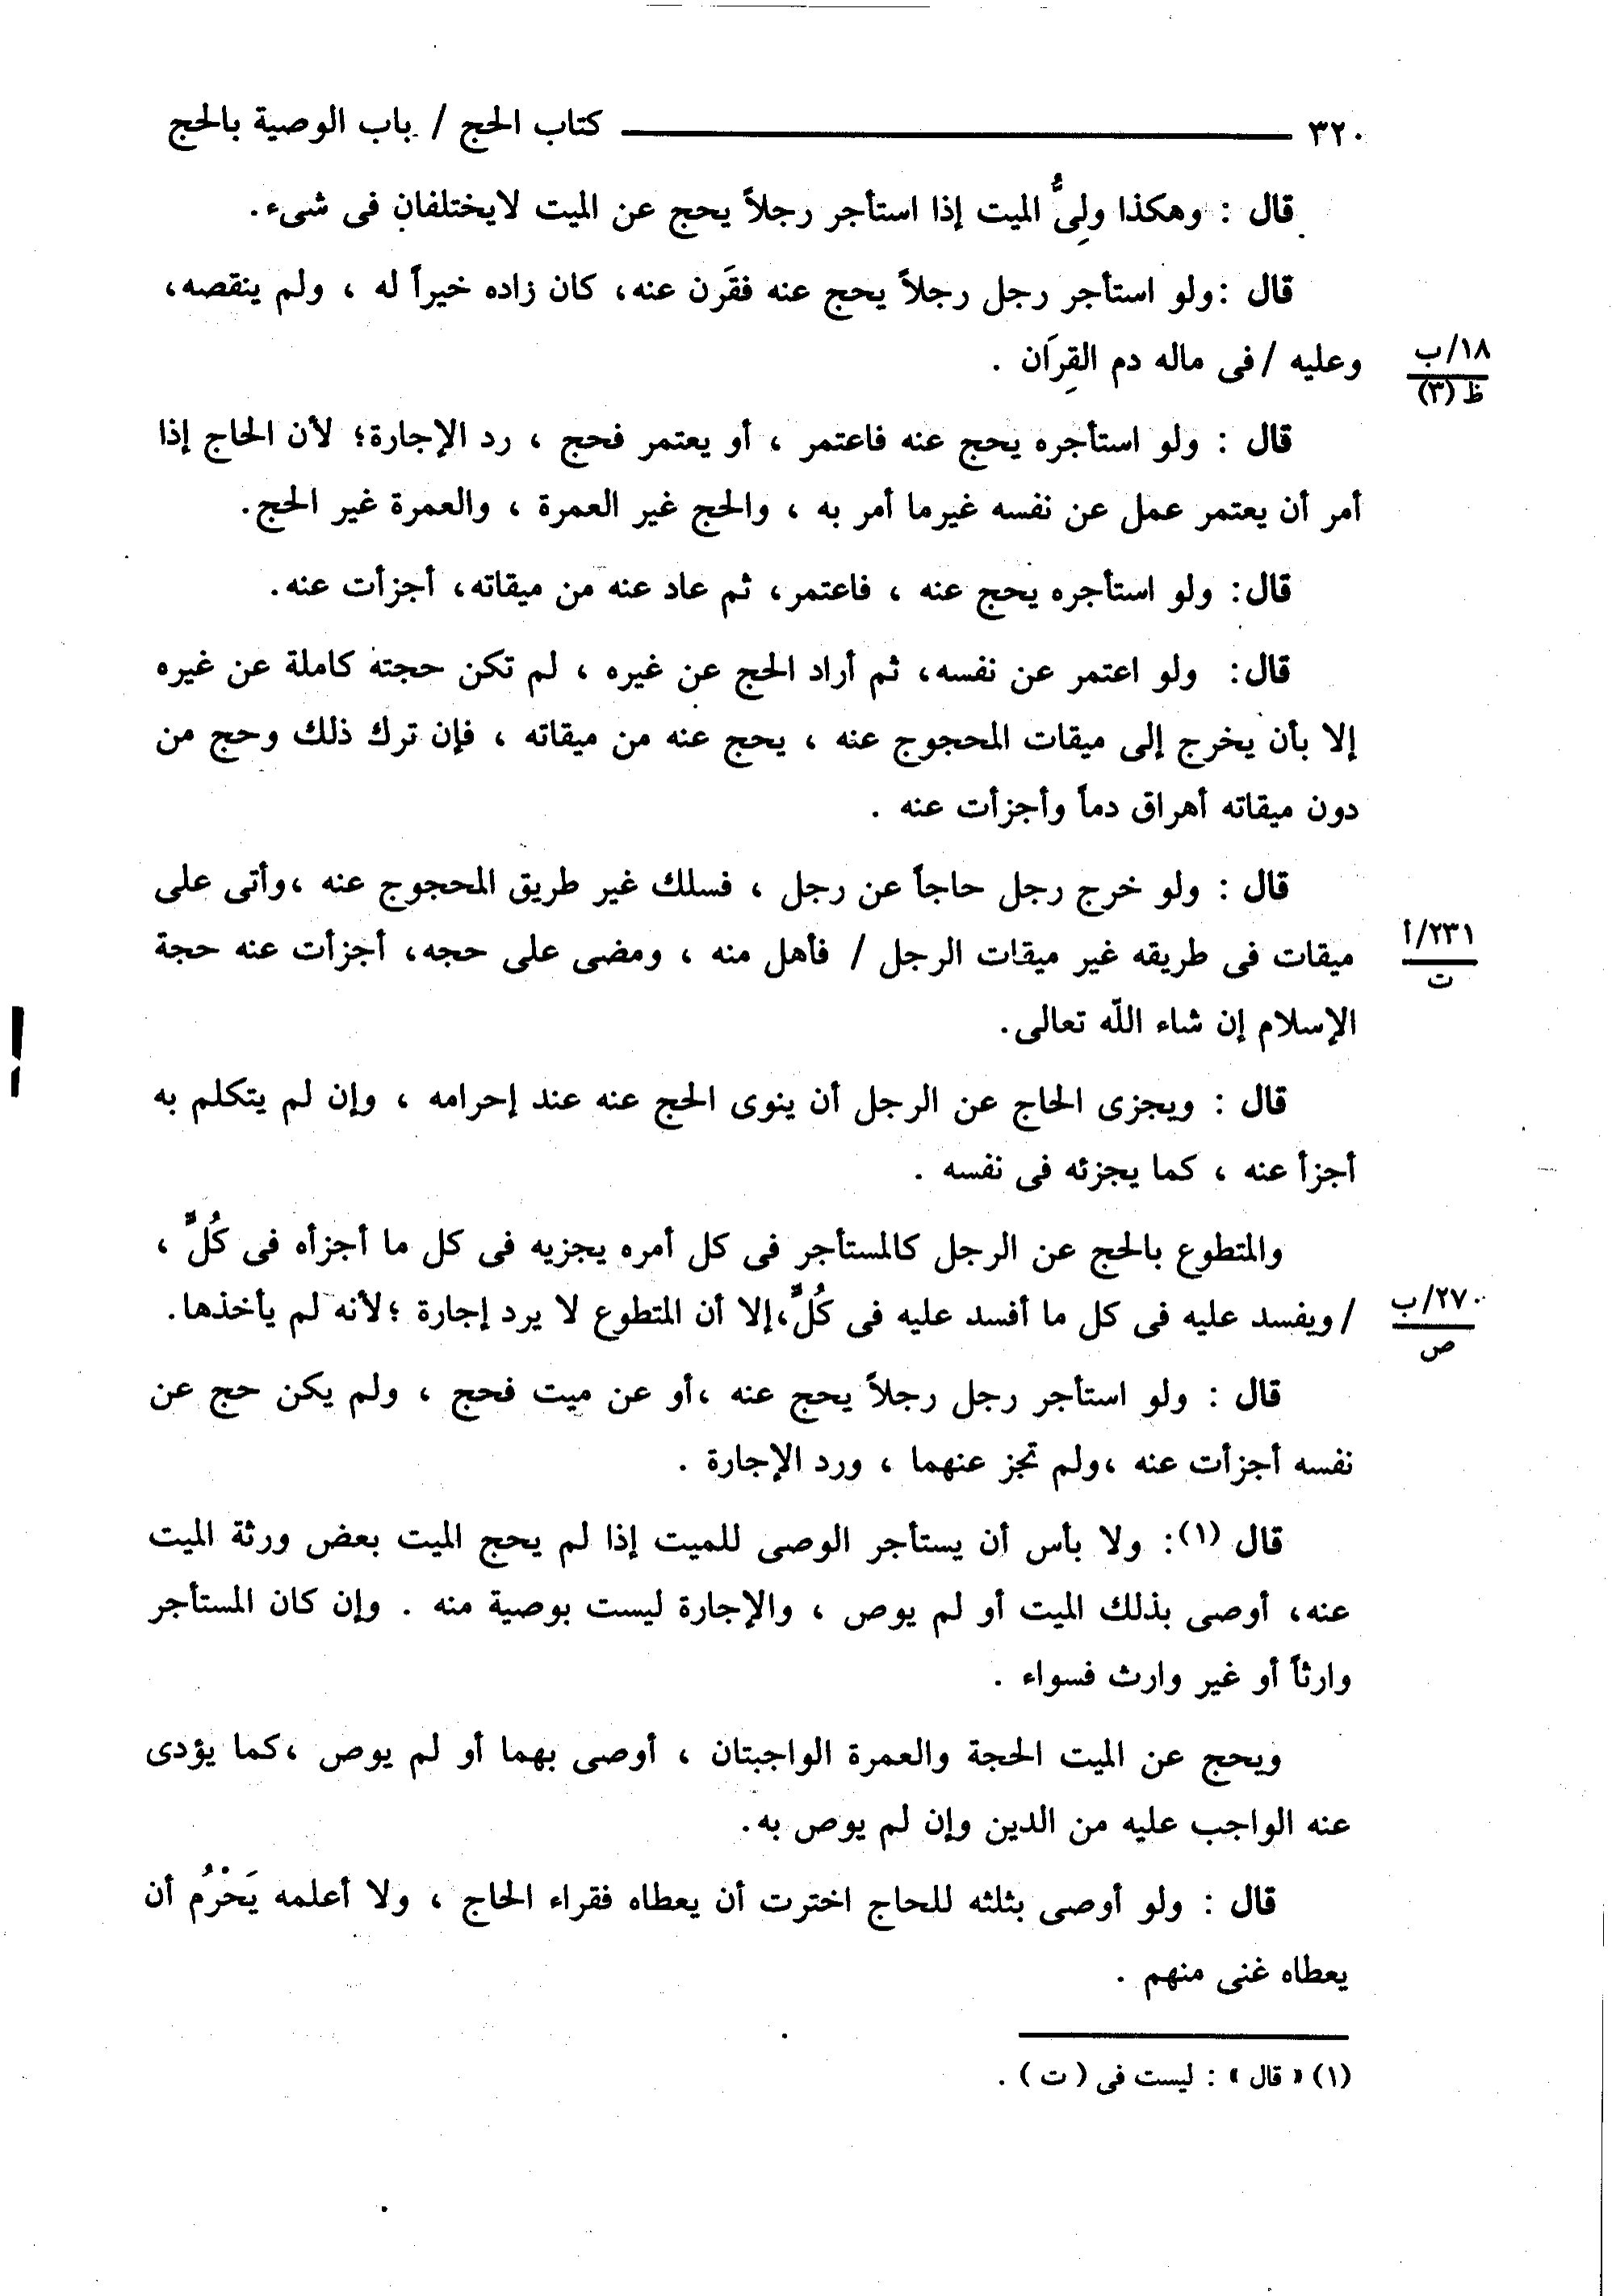 ٣٢٠ ــــــــ كتاب الحج / باب الوصية بالحج
قال : وهكذا ولِىُّ الميت إذا استأجر رجلاً يحج عن الميت لايختلفان فى شىء.
قال :ولو استأجر رجل رجلاً يحج عنه فقَرن عنه، كان زاده خيراً له ، ولم ينقصه،
وعليه / فى ماله دم القِرَان .
١٨/ب
ظ (٣)
قال : ولو استأجره يحج عنه فاعتمر ، أو يعتمر فحج ، رد الإجارة؛ لأن الحاج إذا
أمر أن يعتمر عمل عن نفسه غيرما أمر به ، والحج غير العمرة ، والعمرة غير الحج.
قال: ولو استأجره يحج عنه ، فاعتمر، ثم عاد عنه من ميقاته، أجزأت عنه.
قال: ولو اعتمر عن نفسه، ثم أراد الحج عن غيره ، لم تكن حجته كاملة عن غيره
إلا بأن يخرج إلى ميقات المحجوج عنه ، يحج عنه من ميقاته ، فإن ترك ذلك وحج من
دون ميقاته أهراق دماً وأجزأت عنه .
قال : ولو خرج رجل حاجاً عن رجل ، فسلك غير طريق المحجوج عنه ،وأتى على
ميقات فى طريقه غير ميقات الرجل / فأهل منه ، ومضى على حجه، أجزأت عنه حجة
٢٣١/أ
ت
الإسلام إن شاء اللّه تعالى.
قال : ويجزى الحاج عن الرجل أن ينوى الحج عنه عند إحرامه ، وإن لم يتكلم به
أجزأ عنه ، كما يجزئه فى نفسه .
والمتطوع بالحج عن الرجل كالمستأجر فى كل أمره يجزيه فى كل ما أجزأه فى كُلٍّ ،
/ ويفسد عليه فى كل ما أفسد عليه فى كُلٍّ،إلا أن المتطوع لا يرد إجارة ؛لأنه لم يأخذها.
٢٧٠/ب
ص
قال : ولو استأجر رجل رجلاً يحج عنه ،أو عن ميت فحج ، ولم يكن حج عن
نفسه أجزأت عنه ،ولم تجز عنهما ، ورد الإجارة .
قال (١): ولا بأس أن يستأجر الوصى للميت إذا لم يحج الميت بعض ورثة الميت
عنه، أوصى بذلك الميت أو لم يوص ، والإجارة ليست بوصية منه . وإن كان المستأجر
وارثاً أو غير وارث فسواء .
ويحج عن الميت الحجة والعمرة الواجبتان ، أوصى بهما أو لم يوص ،كما يؤدى
عنه الواجب عليه من الدين وإن لم يوص به.
قال : ولو أوصى بثلثه للحاج اخترت أن يعطاه فقراء الحاج ، ولا أعلمه يَحْرُم أن
يعطاه غنى منهم .
(١) « قال » : ليست فى ( ت ) .